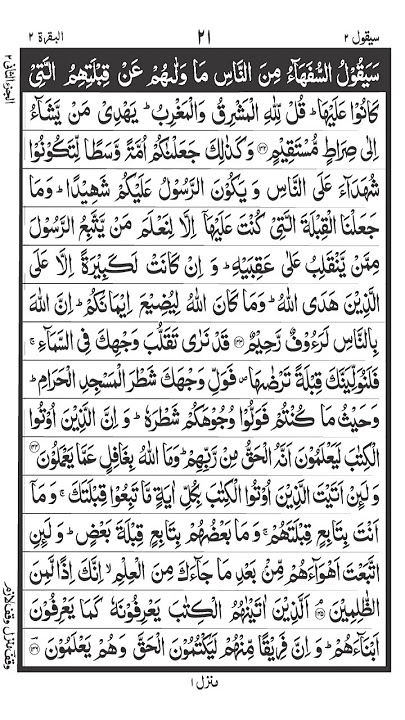 سيقول ٢ ٢١ البقرة ٢
سَيَقُوۡلُ السُّفَهَآءُ مِنَ النَّاسِ مَا وَلّٰٮهُمۡ عَنۡ قِبۡلَتِهِمُ الَّتِىۡ
كَانُوۡا عَلَيۡهَا ؕ قُلۡ لِّلّٰهِ الۡمَشۡرِقُ وَالۡمَغۡرِبُ ؕ يَهۡدِىۡ مَنۡ يَّشَآءُ
اِلٰى صِرَاطٍ مُّسۡتَقِيۡمٍ ﴿۱۴۲﴾ وَكَذٰلِكَ جَعَلۡنٰكُمۡ اُمَّةً وَّسَطًا لِّتَکُوۡنُوۡا
شُهَدَآءَ عَلَى النَّاسِ وَيَكُوۡنَ الرَّسُوۡلُ عَلَيۡكُمۡ شَهِيۡدًا ؕ وَمَا
جَعَلۡنَا الۡقِبۡلَةَ الَّتِىۡ كُنۡتَ عَلَيۡهَآ اِلَّا لِنَعۡلَمَ مَنۡ يَّتَّبِعُ الرَّسُوۡلَ
مِمَّنۡ يَّنۡقَلِبُ عَلٰى عَقِبَيۡهِ ؕ وَاِنۡ كَانَتۡ لَكَبِيۡرَةً اِلَّا عَلَى
الَّذِيۡنَ هَدَى اللّٰهُ ؕ وَمَا كَانَ اللّٰهُ لِيُضِيْعَ اِيۡمَانَكُمۡ ؕ اِنَّ اللّٰهَ
بِالنَّاسِ لَرَءُوۡفٌ رَّحِيۡمٌ ﴿۱۴۳﴾ قَدۡ نَرٰى تَقَلُّبَ وَجۡهِكَ فِى السَّمَآءِ ۚ
فَلَـنُوَلِّيَنَّكَ قِبۡلَةً تَرۡضٰٮهَا ۪ فَوَلِّ وَجۡهَكَ شَطۡرَ الۡمَسۡجِدِ الۡحَـرَامِ ؕ
وَحَيۡثُ مَا كُنۡتُمۡ فَوَلُّوۡا وُجُوۡهَكُمۡ شَطۡرَهٗ ؕ وَاِنَّ الَّذِيۡنَ اُوۡتُوا
الۡكِتٰبَ لَيَعۡلَمُوۡنَ اَنَّهُ الۡحَـقُّ مِنۡ رَّبِّهِمۡ ؕ وَمَا اللّٰهُ بِغَافِلٍ عَمَّا يَعۡمَلُوۡنَ ﴿۱۴۴﴾
وَلَٮِٕنۡ اَ تَيۡتَ الَّذِيۡنَ اُوۡتُوا الۡكِتٰبَ بِكُلِّ اٰيَةٍ مَّا تَبِعُوۡا قِبۡلَتَكَ ۚ وَمَآ
اَنۡتَ بِتَابِعٍ قِبۡلَتَهُمۡ ۚ وَمَا بَعۡضُهُمۡ بِتَابِعٍ قِبۡلَةَ بَعۡضٍ ؕ وَلَٮِٕنِ
اتَّبَعۡتَ اَهۡوَآءَهُمۡ مِّنۡۢ بَعۡدِ مَا جَآءَكَ مِنَ الۡعِلۡمِ ۙ اِنَّكَ اِذًا لَّمِنَ
الظّٰلِمِيۡنَ ﴿۱۴۵﴾ اَلَّذِيۡنَ اٰتَيۡنٰهُمُ الۡكِتٰبَ يَعۡرِفُوۡنَهٗ كَمَا يَعۡرِفُوۡنَ
اَبۡنَآءَهُمۡ ؕ وَاِنَّ فَرِيۡقًا مِّنۡهُمۡ لَيَكۡتُمُوۡنَ الۡحَـقَّ وَهُمۡ يَعۡلَمُوۡنَ ﴿۱۴۶﴾
منزل ١
الجزء الثانی ٢
وقف منزل وقف لازم